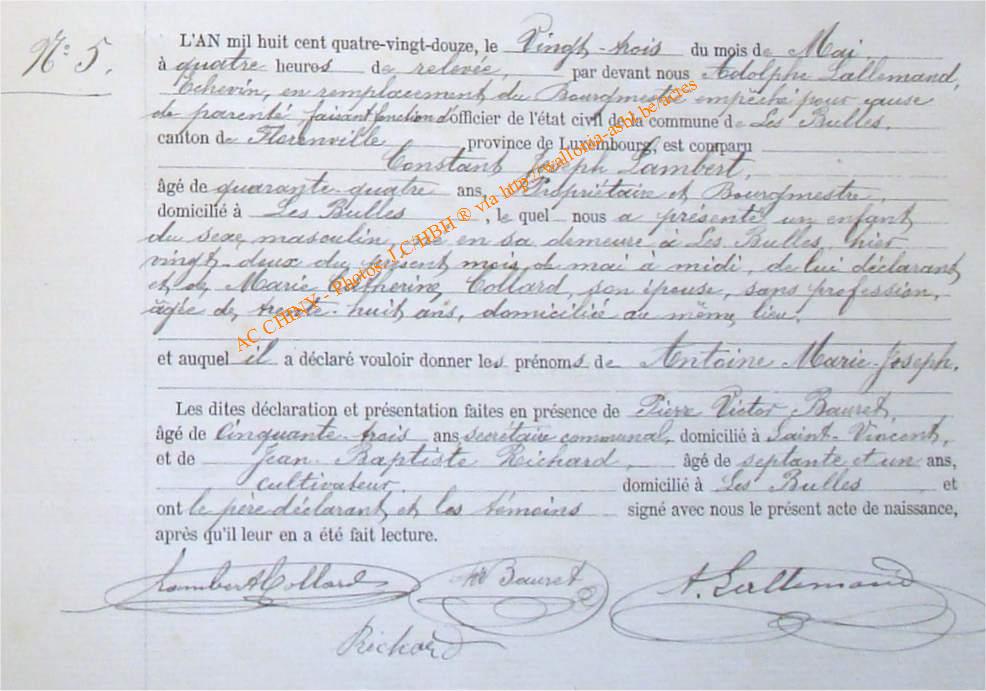 N° 5.
L'AN mil huit cent quatre-vingt-douze, le Vingt-trois du mois de Mai,
à quatre heures de relevée, par devant nous Adolphe Lallemand,
Echevin, en remplacement du Bourgmestre empêché pour cause
de parenté faisant fonction d'officier de l'état civil de la commune de Les Bulles,
canton de Florenville province de Luxembourg, est comparu
Constant Joseph Lambert,
âgé de quarante-quatre ans, Propriétaire et Bourgmestre,
domicilié à Les Bulles, le quel nous a présenté un enfant
du sexe masculin, né en sa demeure à Les Bulles, hier
vingt-deux du présent mois de mai à midi, de lui déclarant
et de Marie Catherine Collard, son épouse, sans profession,
âgée de trente-huit ans, domiciliée au même lieu.
et auquel il a déclaré vouloir donner les prénoms de Antoine Marie-Joseph.
Les dites déclaration et présentation faites en présence de Pierre Victor Bauret,
âgé de Cinquante-trois ans secrétaire communal, domicilié à Saint-Vincent,
et de Jean-Baptiste Richard, âgé de septante et un ans,
cultivateur. domicilié à Les Bulles et
ont le père déclarant et les témoins signé avec nous le présent acte de naissance,
après qu'il leur en a été fait lecture.
Lambert Collard Bauret A. Lallemand
Richard
AC CHINY - Photos J.C/HBH ® via http://wallonia-asbl.be/actes